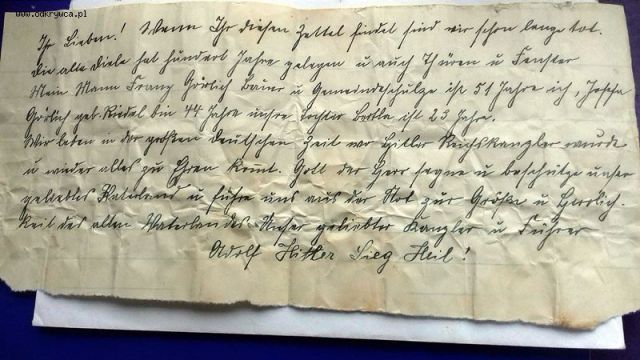 www.odkrywca.pl
Ihr Lieben! Wenn Ihr diesen Zettel findet sind wir schon lange tot.
Die alte Diele hat hundert Jahre gelegen u auch Thüren u Fenster
Mein Mann Franz Görlich Bauer u Gemeindeschulze ist 51 Jahre ich, Josefa
Görlich geb. Riedel bin 44 Jahre unsre Tochter Bertha ist 23 Jahre.
Wir leben in der großen deutschen Zeit wo Hitler Reichskanzler wurde
u wieder alles zu Ehren komt. Gott der Herr segne u beschütze unser
geliebtes Vaterland u führe uns aus der Not zur Größe u Herrlich-
keit des alten Vaterlandes Unser geliebter Kanzler u Führer
Adolf Hitler Sieg Heil!